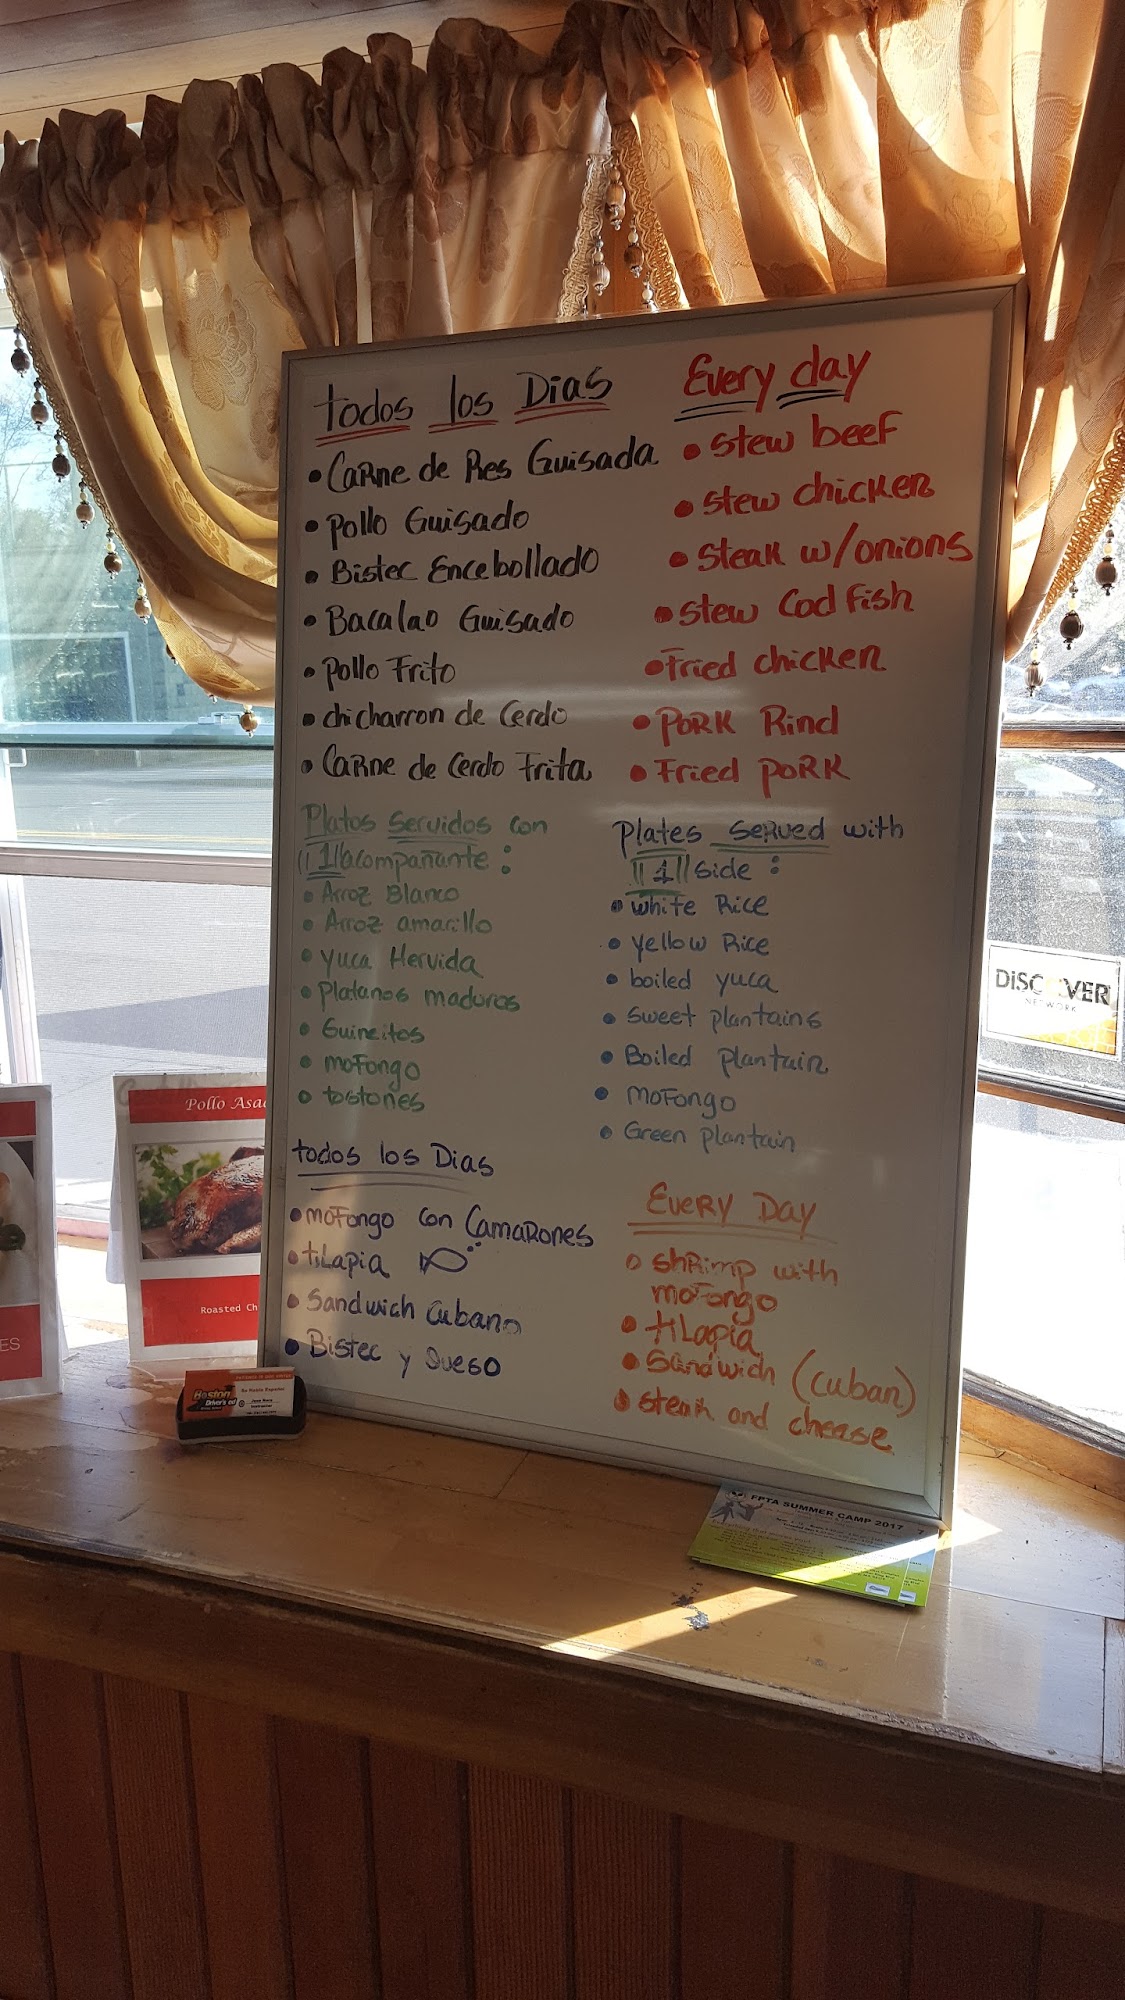 todos los Dias
• Carne de Res Guisada
• Pollo Guisado
• Bistec Encebollado
• Bacalao Guisado
• Pollo Frito
• chicharron de Cerdo
• Carne de Cerdo Frita
Every day
• Stew beef
• Stew chicken
• Steak w/onions
• Stew Cod Fish
• Fried chicken
• Pork Rind
• Fried pork
Platos Servidos con
"1" acompañante:
• Arroz Blanco
• Arroz amarillo
• Yuca Hervida
• Platanos maduros
• Guineitos
• mofongo
• tostones
Plates Served with
"1" side:
• White Rice
• Yellow Rice
• boiled yuca
• Sweet plantains
• Boiled plantain
• Mofongo
• Green plantain
todos los Dias
• mofongo con Camarones
• tilapia
• Sandwich Cubano
• Bistec y Queso
Every Day
• Shrimp with
mofongo
• tilapia
• Sandwich (Cuban)
• Steak and cheese
DISCOVER
NETWORK
Pollo Asa
Roasted Ch
ES
Boston
Driver's ed
FPTA SUMMER CAMP 2017